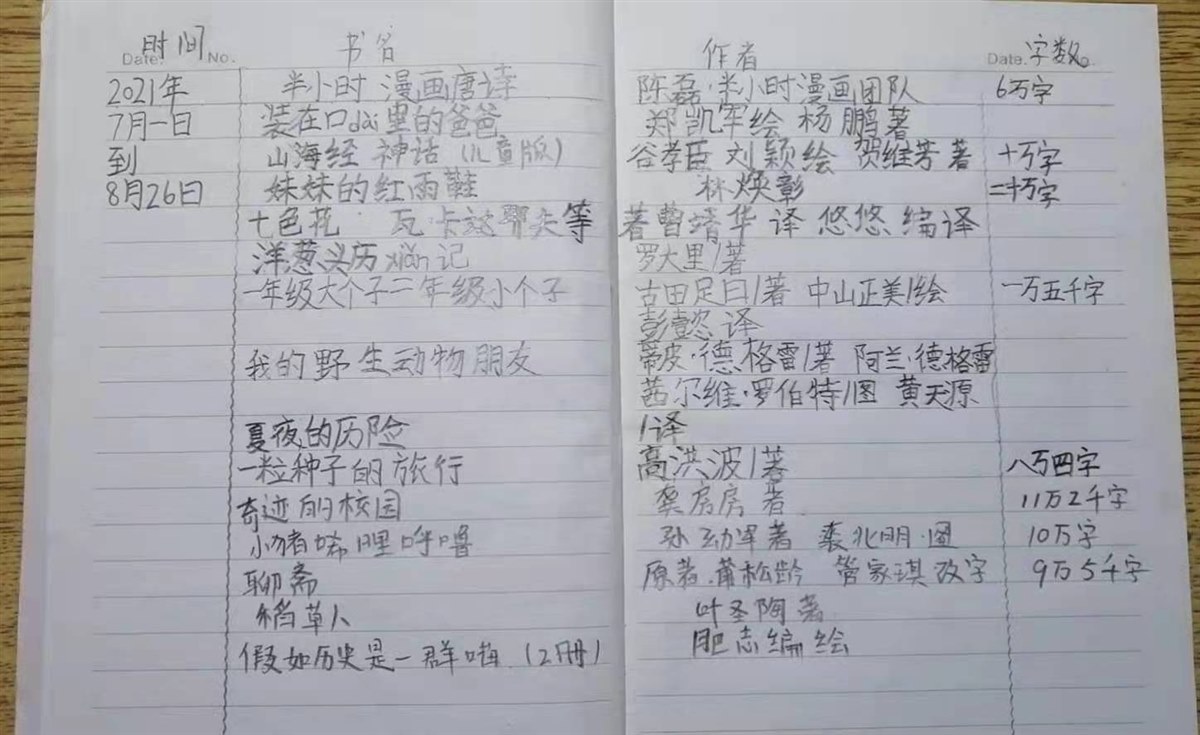 Date. 时间 No. 书名 作者 Date. 字数 No.
2021年 半小时 漫画唐诗 陈磊·半小时漫画团队 6万字
7月一日 装在口dài里的爸爸 郑凯军绘 杨鹏著
到 山海经 神话 (儿童版) 谷孝臣 刘颖绘 贺维芳著 十万字
8月26日 妹妹的红雨鞋 林焕彰 二十万字
七色花 瓦·卡达耶夫等 著曹靖华 译 悠悠 编译
洋葱头历xiǎn记 罗大里/著
一年级大个子二年级小个子 古田足日/著 中山正美/绘 一万五千字
彭懿 译
我的野生动物朋友 蒂皮·德·格雷/著 阿兰·德格雷
茜尔维·罗伯特/图 黄天源
夏夜的历险 /译
一粒种子的旅行 高洪波/著 八万四字
奇迹的校园 龚房房 著 11万2千字
小猪唏哩呼噜 孙幼军著 裘兆明·图 10万字
聊斋 原著.蒲松龄 管家琪改字 9万5千字
稻草人 叶圣陶著
假如历史是一群喵 (2册) 肥志编绘